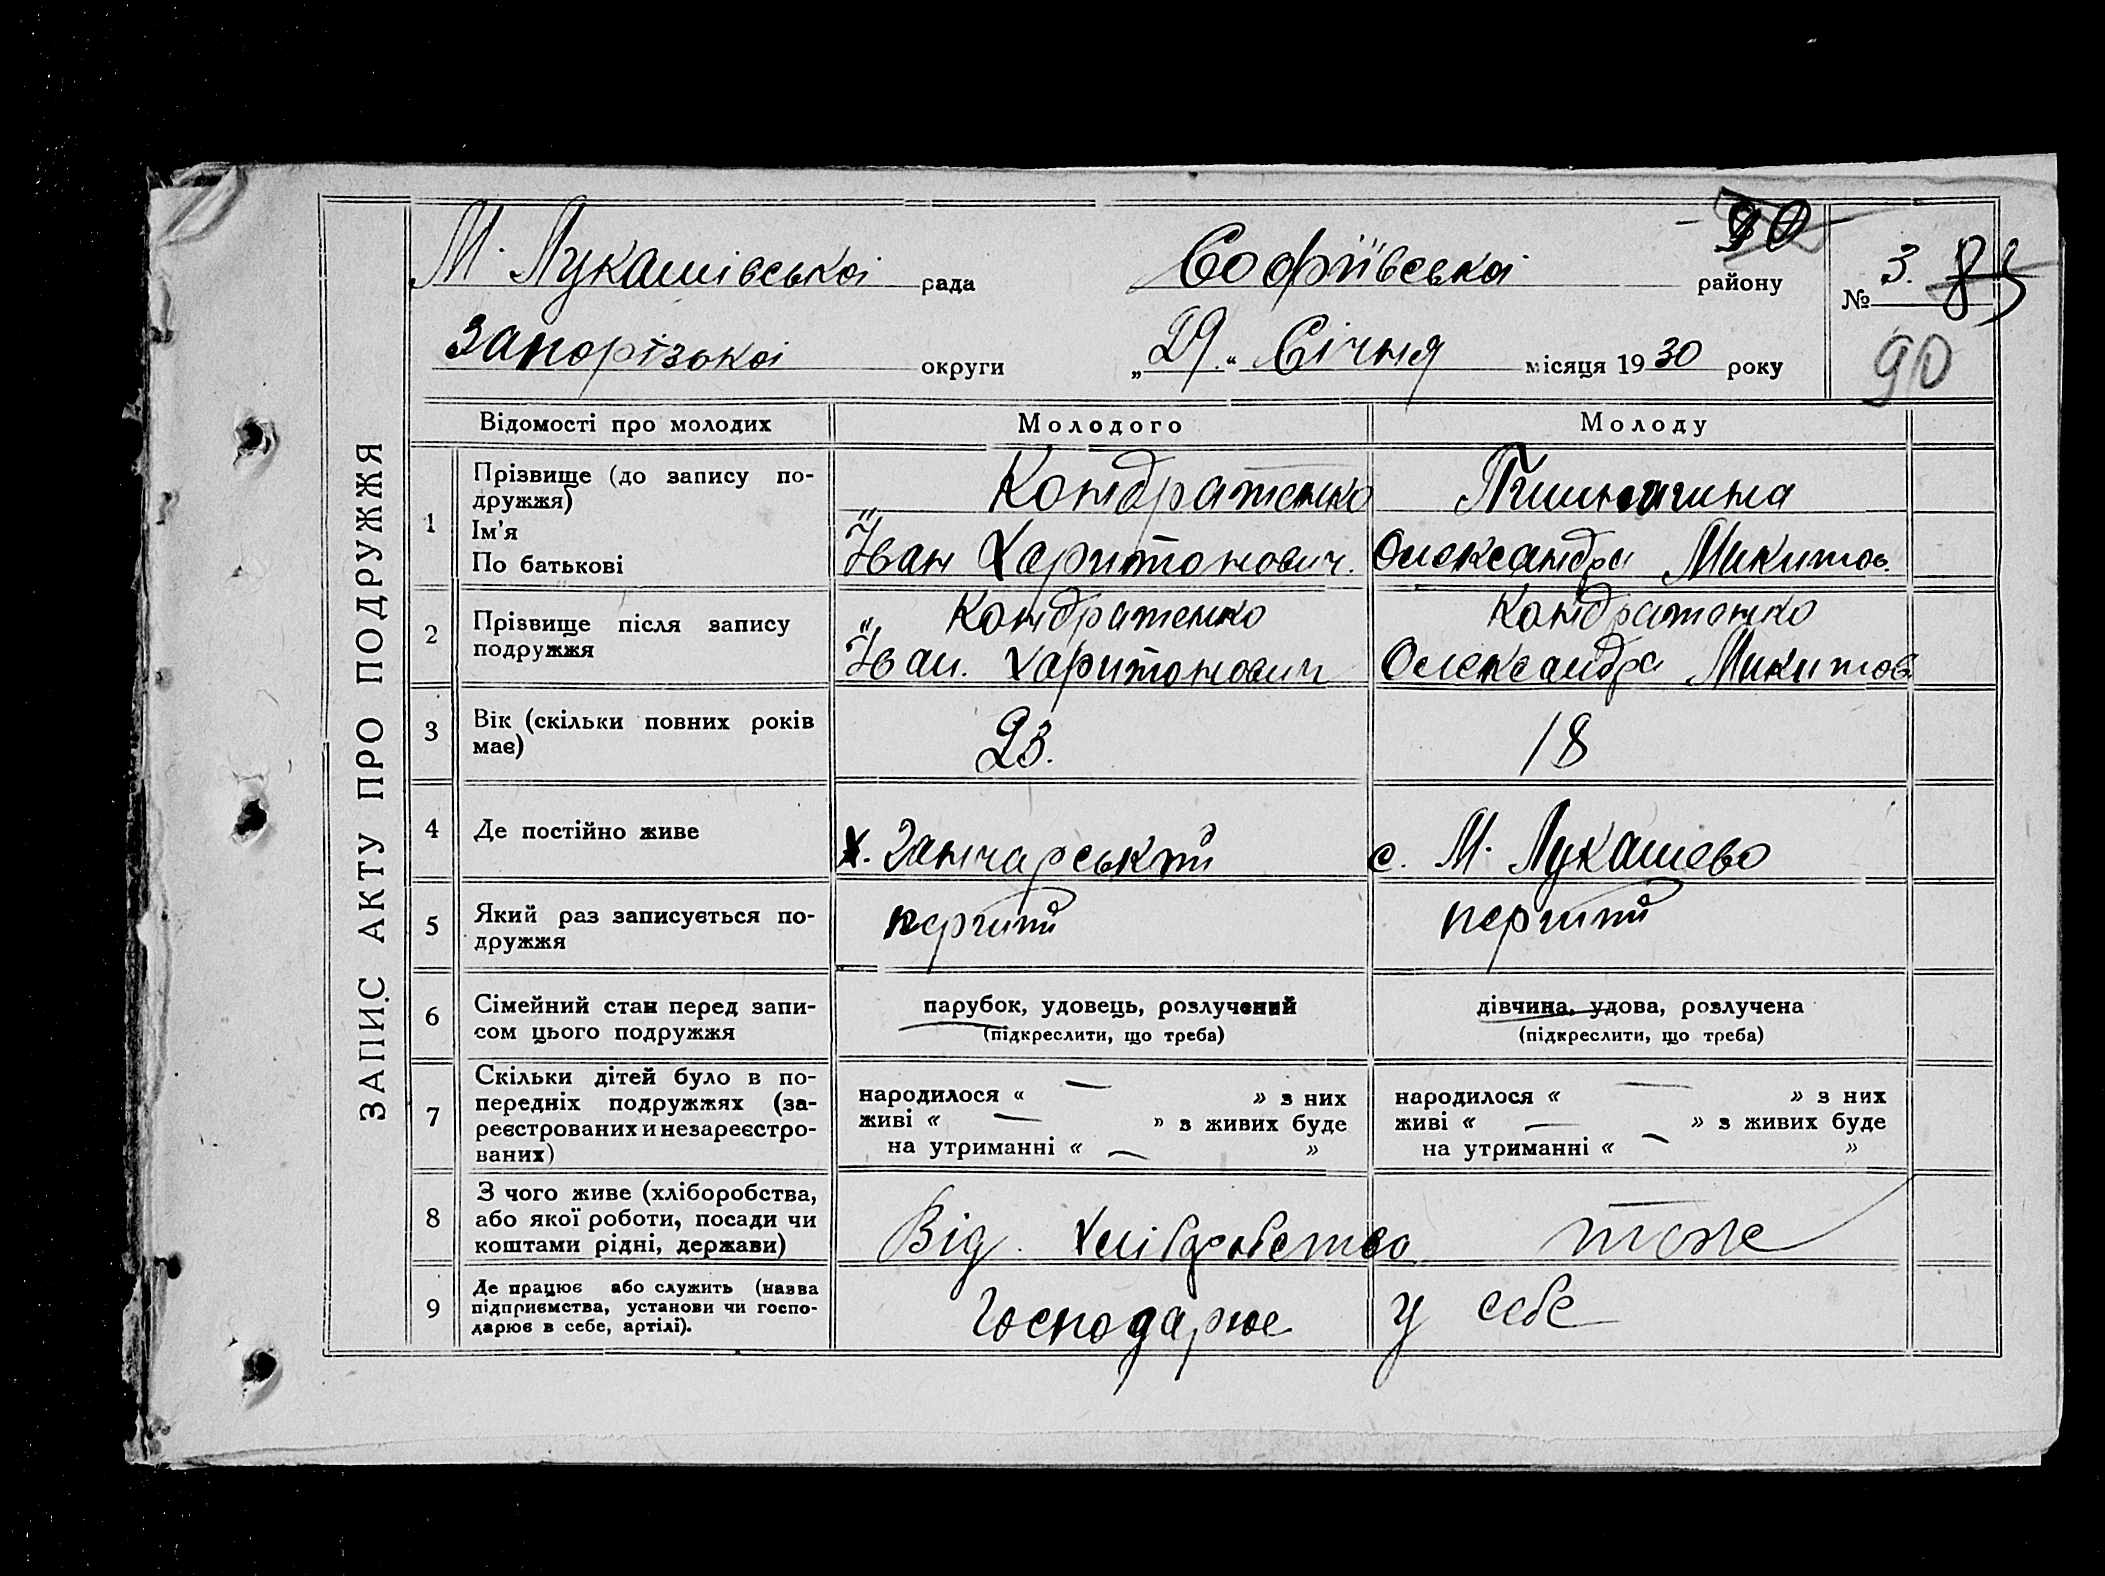 90
М. Лукашівської рада Софіївської району
№ 3. 85
Запорізької округи „29.“ Січня місяця 1930 року
90
ЗАПИС АКТУ ПРО ПОДРУЖЖЯ
Відомості про молодих Молодого Молоду
1 Прізвище (до запису по-
дружжя)
Ім'я
По батькові
Кондратенко
Іван Харитонович.
Олександра Микитов.
2 Прізвище після запису
подружжя
Кондратенко
Іван. Харитонович
Кондратенко
Олександра Микитов
3 Вік (скільки повних років
має)
23.
18
4 Де постійно живе
х. Ганчарський
с. М. Лукашево
5 Який раз записується по-
дружжя
перший
перший
6 Сімейний стан перед запи-
сом цього подружжя
парубок, удовець, розлучений
(підкреслити, що треба)
дівчина, удова, розлучена
(підкреслити, що треба)
7 Скільки дітей було в по-
передніх подружжях (за-
реєстрованих и незареєстро-
ваних)
народилося « — » з них
живі « — » з живих буде
на утриманні « — »
народилося « — » з них
живі « — » з живих буде
на утриманні « — »
8 З чого живе (хліборобства,
або якої роботи, посади чи
коштами рідні, держави)
Від. Хліборобство
тоже
9 Де працює або служить (назва
підприємства, установи чи госпо-
дарює в себе, артілі).
Господарює у себе